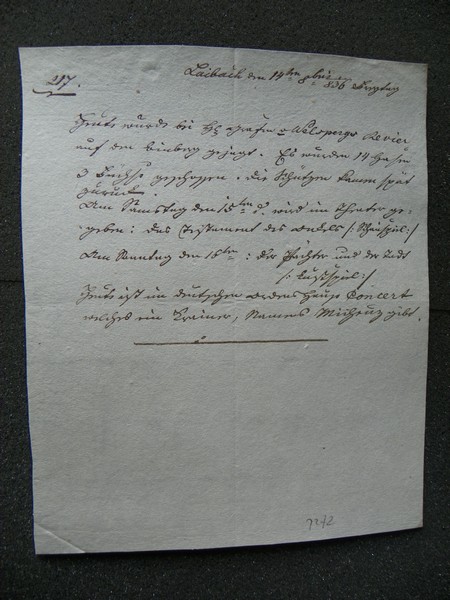 217.
Laibach den 14ten 8bris 836 Freytag
Heute wurde bei H. Grafen v Walsperg Revier
auf den gejagt. Es wurden 14 Hasen
3 Füchse geschossen. Die Schützen kamen spät
zurück.
Am Samstag den 15ten d. wird im Theater ge-
geben: das Testament des Onkels /: Schauspiel :/
Am Sonntag den 16ten: der Pächter und der Tod
/: Lustspiel :/
Heute ist im deutschen Ordens Hause Concert
welches ein Krainer, Namens gibt.
7242